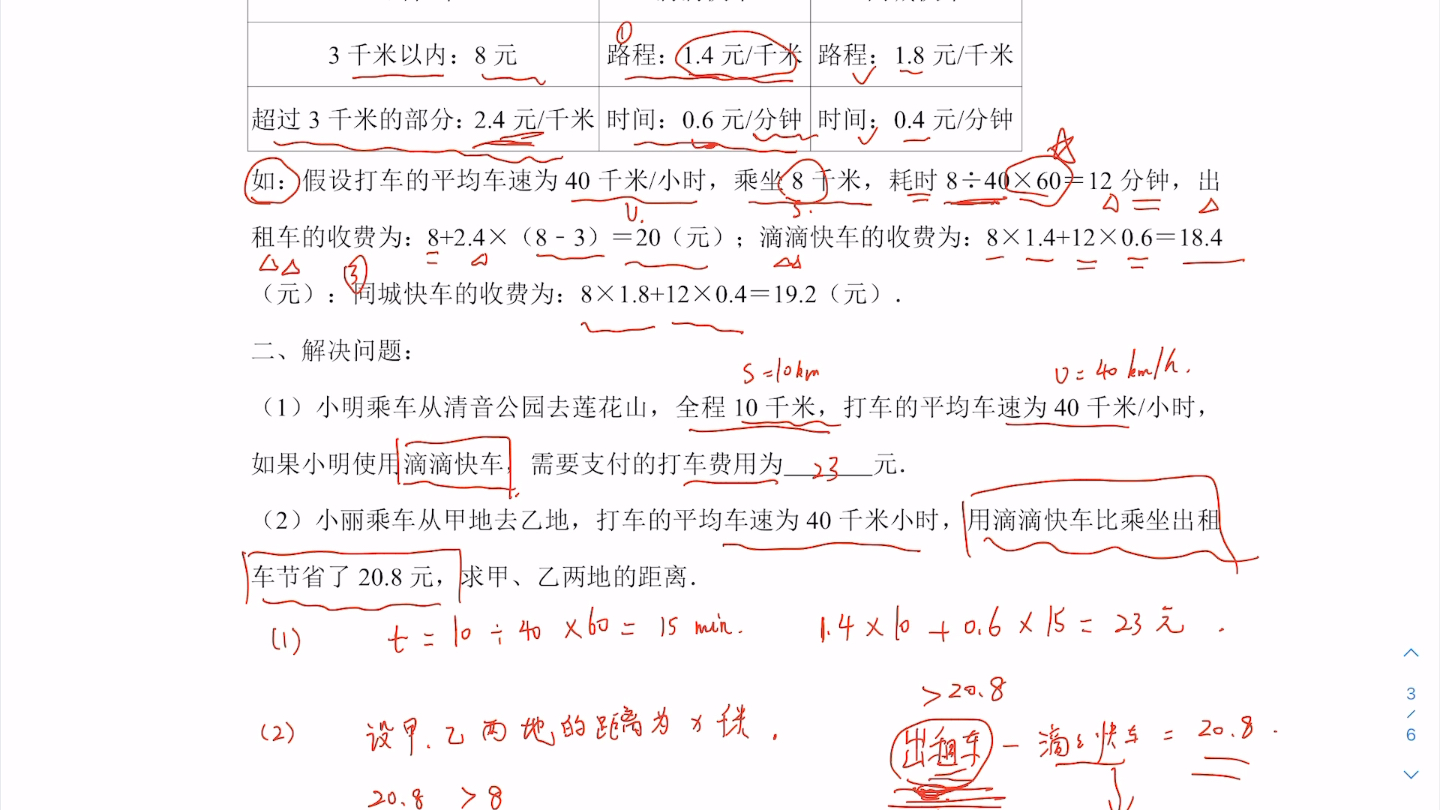 3 千米以内：8 元 路程：1.4 元/千米 路程：1.8 元/千米
①
超过 3 千米的部分：2.4 元/千米 时间：0.6 元/分钟 时间：0.4 元/分钟
如：假设打车的平均车速为 40 千米/小时，乘坐 8 千米，耗时 8÷40×60＝12 分钟，出
v. s.
租车的收费为：8+2.4×（8﹣3）＝20（元）；滴滴快车的收费为：8×1.4+12×0.6＝18.4
③
（元）：同城快车的收费为：8×1.8+12×0.4＝19.2（元）．
二、解决问题：
s=10km v=40km/h.
（1）小明乘车从清音公园去莲花山，全程 10 千米，打车的平均车速为 40 千米/小时，
如果小明使用滴滴快车，需要支付的打车费用为 23 元．
（2）小丽乘车从甲地去乙地，打车的平均车速为 40 千米小时，用滴滴快车比乘坐出租
车节省了 20.8 元，求甲、乙两地的距离．
(1) t = 10 ÷ 40 × 60 = 15 min. 1.4 × 10 + 0.6 × 15 = 23 元.
>20.8
(2) 设甲、乙两地的距离为 x 千米. 出租车 - 滴滴快车 = 20.8.
20.8 > 8
3
/
6